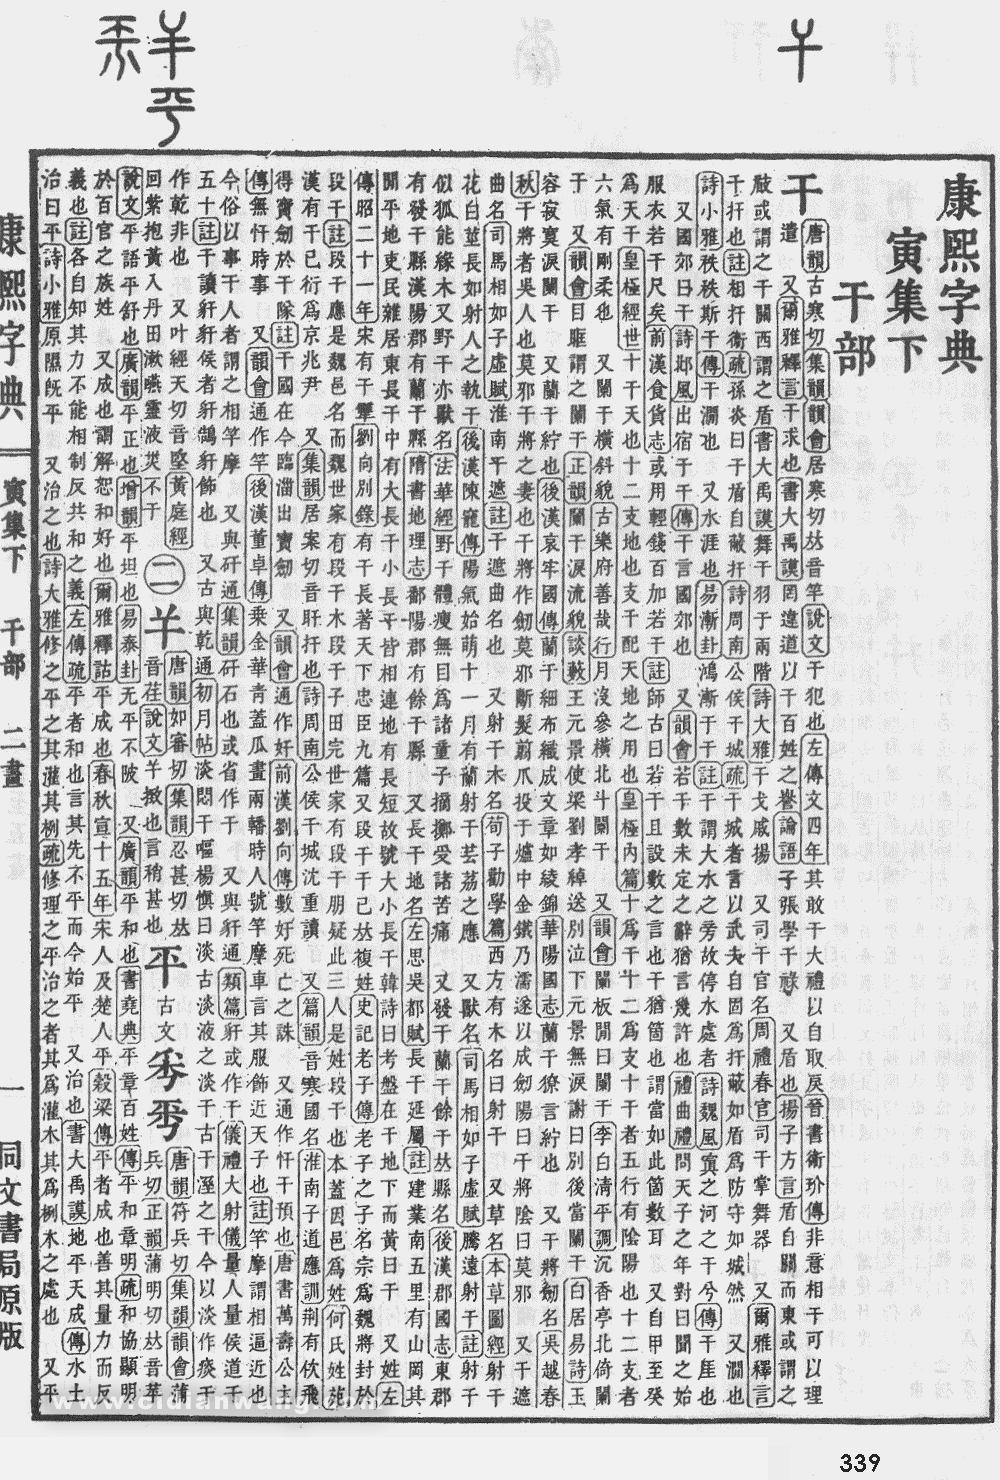 康熙字典
寅集下
干部
干
唐韻古寒切集韻韻會居寒切𠀤音竿說文干犯也左傳文四年其敢干大禮以自取戾晉書衛玠傳非意相干可以理
遣 又爾雅釋言干求也書大禹謨罔違道以干百姓之譽論語子張學干祿 又盾也揚子方言盾自關而東或謂之
瞂或謂之干關西謂之盾書大禹謨舞干羽于兩階詩大雅干戈戚揚 又司干官名周禮春官司干掌舞器 又爾雅釋言
干扞也註相扞衞疏孫炎曰干盾自蔽扞詩周南公侯干城疏干城者言以武夫自固爲扞蔽如盾爲防守如城然 又澗也
詩小雅秩秩斯干傳干澗也 又水涯也易漸卦鴻漸于干註干謂大水之旁故停水處者詩魏風寘之河之干今傳干厓也
又國郊曰干詩邶風出宿于干傳干言國郊也 又韻會若干數未定之辭猶言幾許也禮曲禮問天子之年對曰聞之始
服衣若干尺矣前漢食貨志或用輕錢百加若干註師古曰若干且設數之言也干猶箇也謂當如此箇數耳 又自甲至癸
爲天干皇極經世十干天也十二支地也支干配天地之用也皇極內篇十爲干十二爲支十干者五行有陰陽也十二支者
六氣有剛柔也 又闌干橫斜貌古樂府善哉行月沒參橫北斗闌干 又韻會闌板閒曰闌干李白淸平調沉香亭北倚闌
干 又韻會目眶謂之闌干正韻闌干淚流貌談藪王元景使梁劉孝綽送別泣下元景無淚謝曰別後當闌干白居易詩玉
容寂寞淚闌干 又蘭干紵也後漢哀牢國傳蘭干細布織成文章如綾錦華陽國志蘭干獠言紵也 又干將劒名吳越春
秋干將者吳人也莫邪干將之妻也干將作劒莫邪斷髮翦爪投于爐中金鐵乃濡遂以成劒陽曰干將陰曰莫邪 又干遮
曲名司馬相如子虛賦淮南干遮註干遮曲名也 又射干木名荀子勸學篇西方有木名曰射干 又草名本草圖經射干
花白莖長如射人之執干後漢陳寵傳陽氣始萌十一月有蘭射干芸荔之應 又獸名司馬相如子虛賦騰遠射干註射干
似狐能緣木又野干亦獸名法華經野干體瘦無目爲諸童子摘擲受諸苦痛 又發干蘭干餘干𠀤縣名後漢郡國志東郡
有發干縣漢陽郡有蘭干縣隋書地理志鄱陽郡有餘干縣 又長干地名左思吳都賦長干延屬註建業南五里有山岡其
閒平地吏民雜居東長干中有大長干小長干皆相連地有長短故號大小長干韓詩曰考盤在干地下而黃曰干 又姓左
傳昭二十一年宋有干犨劉向別錄有干長著天下忠臣九篇 又段干干己𠀤複姓史記老子傳老子之子名宗爲魏將封於
段干註段干應是魏邑名而魏世家有段干木段干子田完世家有段干朋疑此三人是姓段干也本蓋因邑爲姓何氏姓苑
漢有干已衍爲京兆尹 又集韻居案切音旰扞也詩周南公侯干城沈重讀 又篇韻音寒國名淮南子道應訓荆有佽飛
得寶劍於干隊註干國在今臨淄出寶劒 又韻會通作奸前漢劉向傳數奸死亡之誅 又通作忓干預也唐書萬壽公主
傳無忓時事 又韻會通作竿後漢董卓傳乗金華靑蓋瓜畫兩轓時人號竿摩車言其服飾近天子也註竿摩謂相逼近也
今俗以事干人者謂之相竿摩 又與矸通集韻矸石也或省作干 又與豻通類篇豻或作干儀禮大射儀量人量侯道干
五十註干讀豻豻侯者豻鵠豻飾也 又古與乾通初月帖淡悶干嘔楊愼曰淡古淡液之淡干古干溼之干今以淡作痰干
作乾非也 又叶經天切音堅黃庭經
回紫抱黃入丹田漱嚥靈液災不干
㊁
𢆉
唐韻如審切集韻忍甚切𠀤
音荏說文𢆉撖也言稍甚也
平
古文𠀤 兵切正韻蒲明切𠀤音苹
唐韻符兵切集韻韻會蒲
說文平語平舒也廣韻平正也增韻平坦也易泰卦无平不陂 又廣韻平和也書堯典平章百姓傳平和章明疏和協顯明
於百官之族姓 又成也謂解恕和好也爾雅釋詁平成也春秋宣十五年宋人及楚人平穀梁傳平者成也善其量力而反
義也註各自知其力不能相制反共和之義左傳疏平者和也言其先不平而今始平 又治也書大禹謨地平天成傳水土
治曰平詩小雅原隰旣平 又治之也詩大雅修之平之其灌其栵疏修理之平治之者其爲灌木其爲栵木之處也 又平
康熙字典
寅集下
干部
二畫
一
同文書局原版
www.cidianwang.com
339